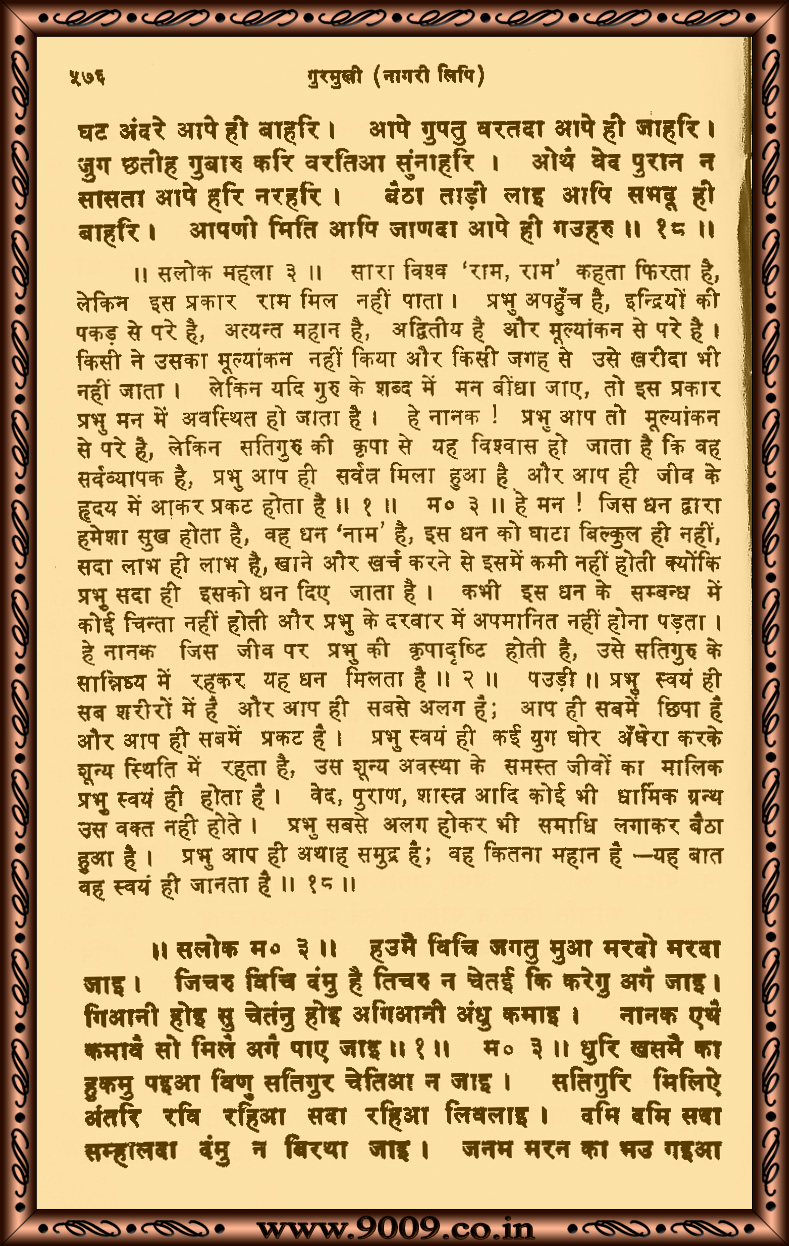 ५७६ गुरमुखी (नागरी लिपि)
घट अंदरे आपे ही बाहरि। आपे गुपतु वरतदा आपे ही जाहरि।
जुग छतीह गुबारु करि वरतिआ सुंनाहरि। ओथै वेद पुरान न
सासता आपे हरि नरहरि। बैठा ताड़ी लाइ आपि सभदू ही
बाहरि। आपणी मिति आपि जाणदा आपे ही गउहरु॥ १८॥
॥ सलोक महला ३॥ सारा विश्व ‘राम, राम’ कहता फिरता है,
लेकिन इस प्रकार राम मिल नहीं पाता। प्रभु अपहुँच है, इन्द्रियों की
पकड़ से परे है, अत्यन्त महान है, अद्वितीय है और मूल्यांकन से परे है।
किसी ने उसका मूल्यांकन नहीं किया और किसी जगह से उसे ख़रीदा भी
नहीं जाता। लेकिन यदि गुरु के शब्द में मन बींधा जाए, तो इस प्रकार
प्रभु मन में अवस्थित हो जाता है। हे नानक! प्रभु आप तो मूल्यांकन
से परे है, लेकिन सतिगुरु की कृपा से यह विश्वास हो जाता है कि वह
सर्वव्यापक है, प्रभु आप ही सर्वत्र मिला हुआ है और आप ही जीव के
हृदय में आकर प्रकट होता है॥ १॥ म० ३॥ हे मन! जिस धन द्वारा
हमेशा सुख होता है, वह धन ‘नाम’ है, इस धन को घाटा बिल्कुल ही नहीं,
सदा लाभ ही लाभ है, खाने और खर्च करने से इसमें कमी नहीं होती क्योंकि
प्रभु सदा ही इसको धन दिए जाता है। कभी इस धन के सम्बन्ध में
कोई चिन्ता नहीं होती और प्रभु के दरबार में अपमानित नहीं होना पड़ता।
हे नानक जिस जीव पर प्रभु की कृपादृष्टि होती है, उसे सतिगुरु के
सान्निध्य में रहकर यह धन मिलता है॥ २॥ पउड़ी॥ प्रभु स्वयं ही
सब शरीरों में है और आप ही सबसे अलग है; आप ही सबमें छिपा है
और आप ही सबमें प्रकट है। प्रभु स्वयं ही कई युग घोर अँधेरा करके
शून्य स्थिति में रहता है, उस शून्य अवस्था के समस्त जीवों का मालिक
प्रभु स्वयं ही होता है। वेद, पुराण, शास्त्र आदि कोई भी धार्मिक ग्रन्थ
उस वक्त नही होते। प्रभु सबसे अलग होकर भी समाधि लगाकर बैठा
हुआ है। प्रभु आप ही अथाह समुद्र है; वह कितना महान है —यह बात
वह स्वयं ही जानता है॥ १८॥
॥ सलोक म० ३॥ हउमै विचि जगतु मुआ मरदो मरदा
जाइ। जिचरु विचि दंमु है तिचरु न चेतई कि करेगु अगै जाइ।
गिआनी होइ सु चेतंनु होइ अगिआनी अंधु कमाइ। नानक एथै
कमावै सो मिलै अगै पाए जाइ॥ १॥ म० ३॥ धुरि खसमै का
हुकमु पइआ विणु सतिगुर चेतिआ न जाइ। सतिगुरि मिलिऐ
अंतरि रवि रहिआ सदा रहिआ लिवलाइ। दमि दमि सदा
सम्हालदा दंमु न बिरथा जाइ। जनम मरन का भउ गइआ
www.9009.co.in